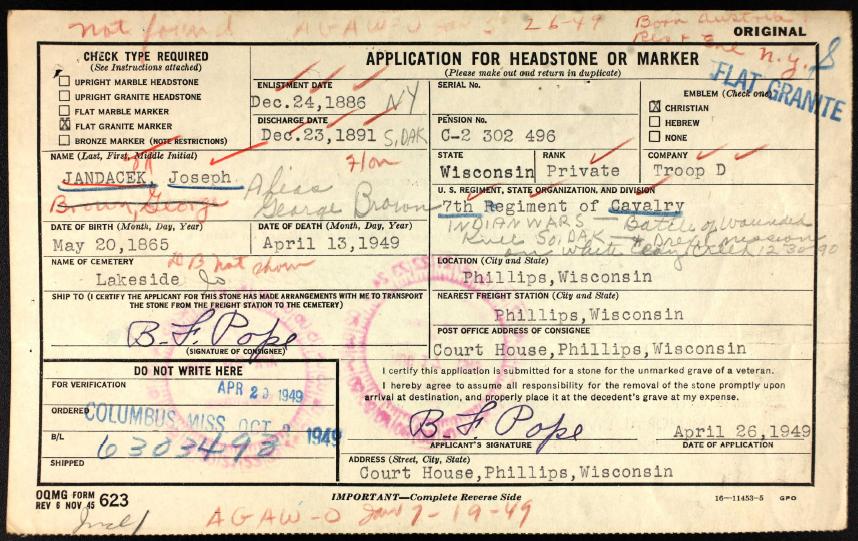 not found AGAW-O Jan 5 26-49 Born Austria
N.Y. S
ORIGINAL
CHECK TYPE REQUIRED
(See Instructions attached)
UPRIGHT MARBLE HEADSTONE
UPRIGHT GRANITE HEADSTONE
FLAT MARBLE MARKER
X FLAT GRANITE MARKER
BRONZE MARKER (NOTE RESTRICTIONS)
APPLICATION FOR HEADSTONE OR MARKER
(Please make out and return in duplicate)
FLAT GRANITE
ENLISTMENT DATE
Dec.24,1886 NY
DISCHARGE DATE
Dec.23,1891 S.DAK
SERIAL No.
PENSION No.
C-2 302 496
EMBLEM (Check one)
X CHRISTIAN
HEBREW
NONE
NAME (Last, First, Middle Initial)
JANDACEK, Joseph
Brown, George
Alias
George Brown
STATE
Wisconsin
RANK
Private
COMPANY
Troop D
U. S. REGIMENT, STATE ORGANIZATION, AND DIVISION
7th Regiment of Cavalry
INDIAN WARS — Battle of Wounded
Knee So. DAK — & Drexel mission
on White Clay Creek 12-30-90
DATE OF BIRTH (Month, Day, Year)
May 20,1865
DATE OF DEATH (Month, Day, Year)
April 13,1949
NAME OF CEMETERY
D B not shown
Lakeside
LOCATION (City and State)
Phillips,Wisconsin
SHIP TO (I CERTIFY THE APPLICANT FOR THIS STONE HAS MADE ARRANGEMENTS WITH ME TO TRANSPORT
THE STONE FROM THE FREIGHT STATION TO THE CEMETERY)
B. F. Pope
(SIGNATURE OF CONSIGNEE)
NEAREST FREIGHT STATION (City and State)
Phillips,Wisconsin
POST OFFICE ADDRESS OF CONSIGNEE
Court House,Phillips,Wisconsin
DO NOT WRITE HERE
FOR VERIFICATION APR 29 1949
ORDERED
COLUMBUS, MISS. OCT 1949
B/L 6303493
SHIPPED
I certify this application is submitted for a stone for the unmarked grave of a veteran.
I hereby agree to assume all responsibility for the removal of the stone promptly upon
arrival at destination, and properly place it at the decedent's grave at my expense.
B. F. Pope April 26,1949
APPLICANT'S SIGNATURE DATE OF APPLICATION
ADDRESS (Street, City, State)
Court House,Phillips,Wisconsin
OQMG FORM
REV 6 NOV 45 623
IMPORTANT—Complete Reverse Side
16—11453-5 GPO
AGAW-O Jan 7-19-49